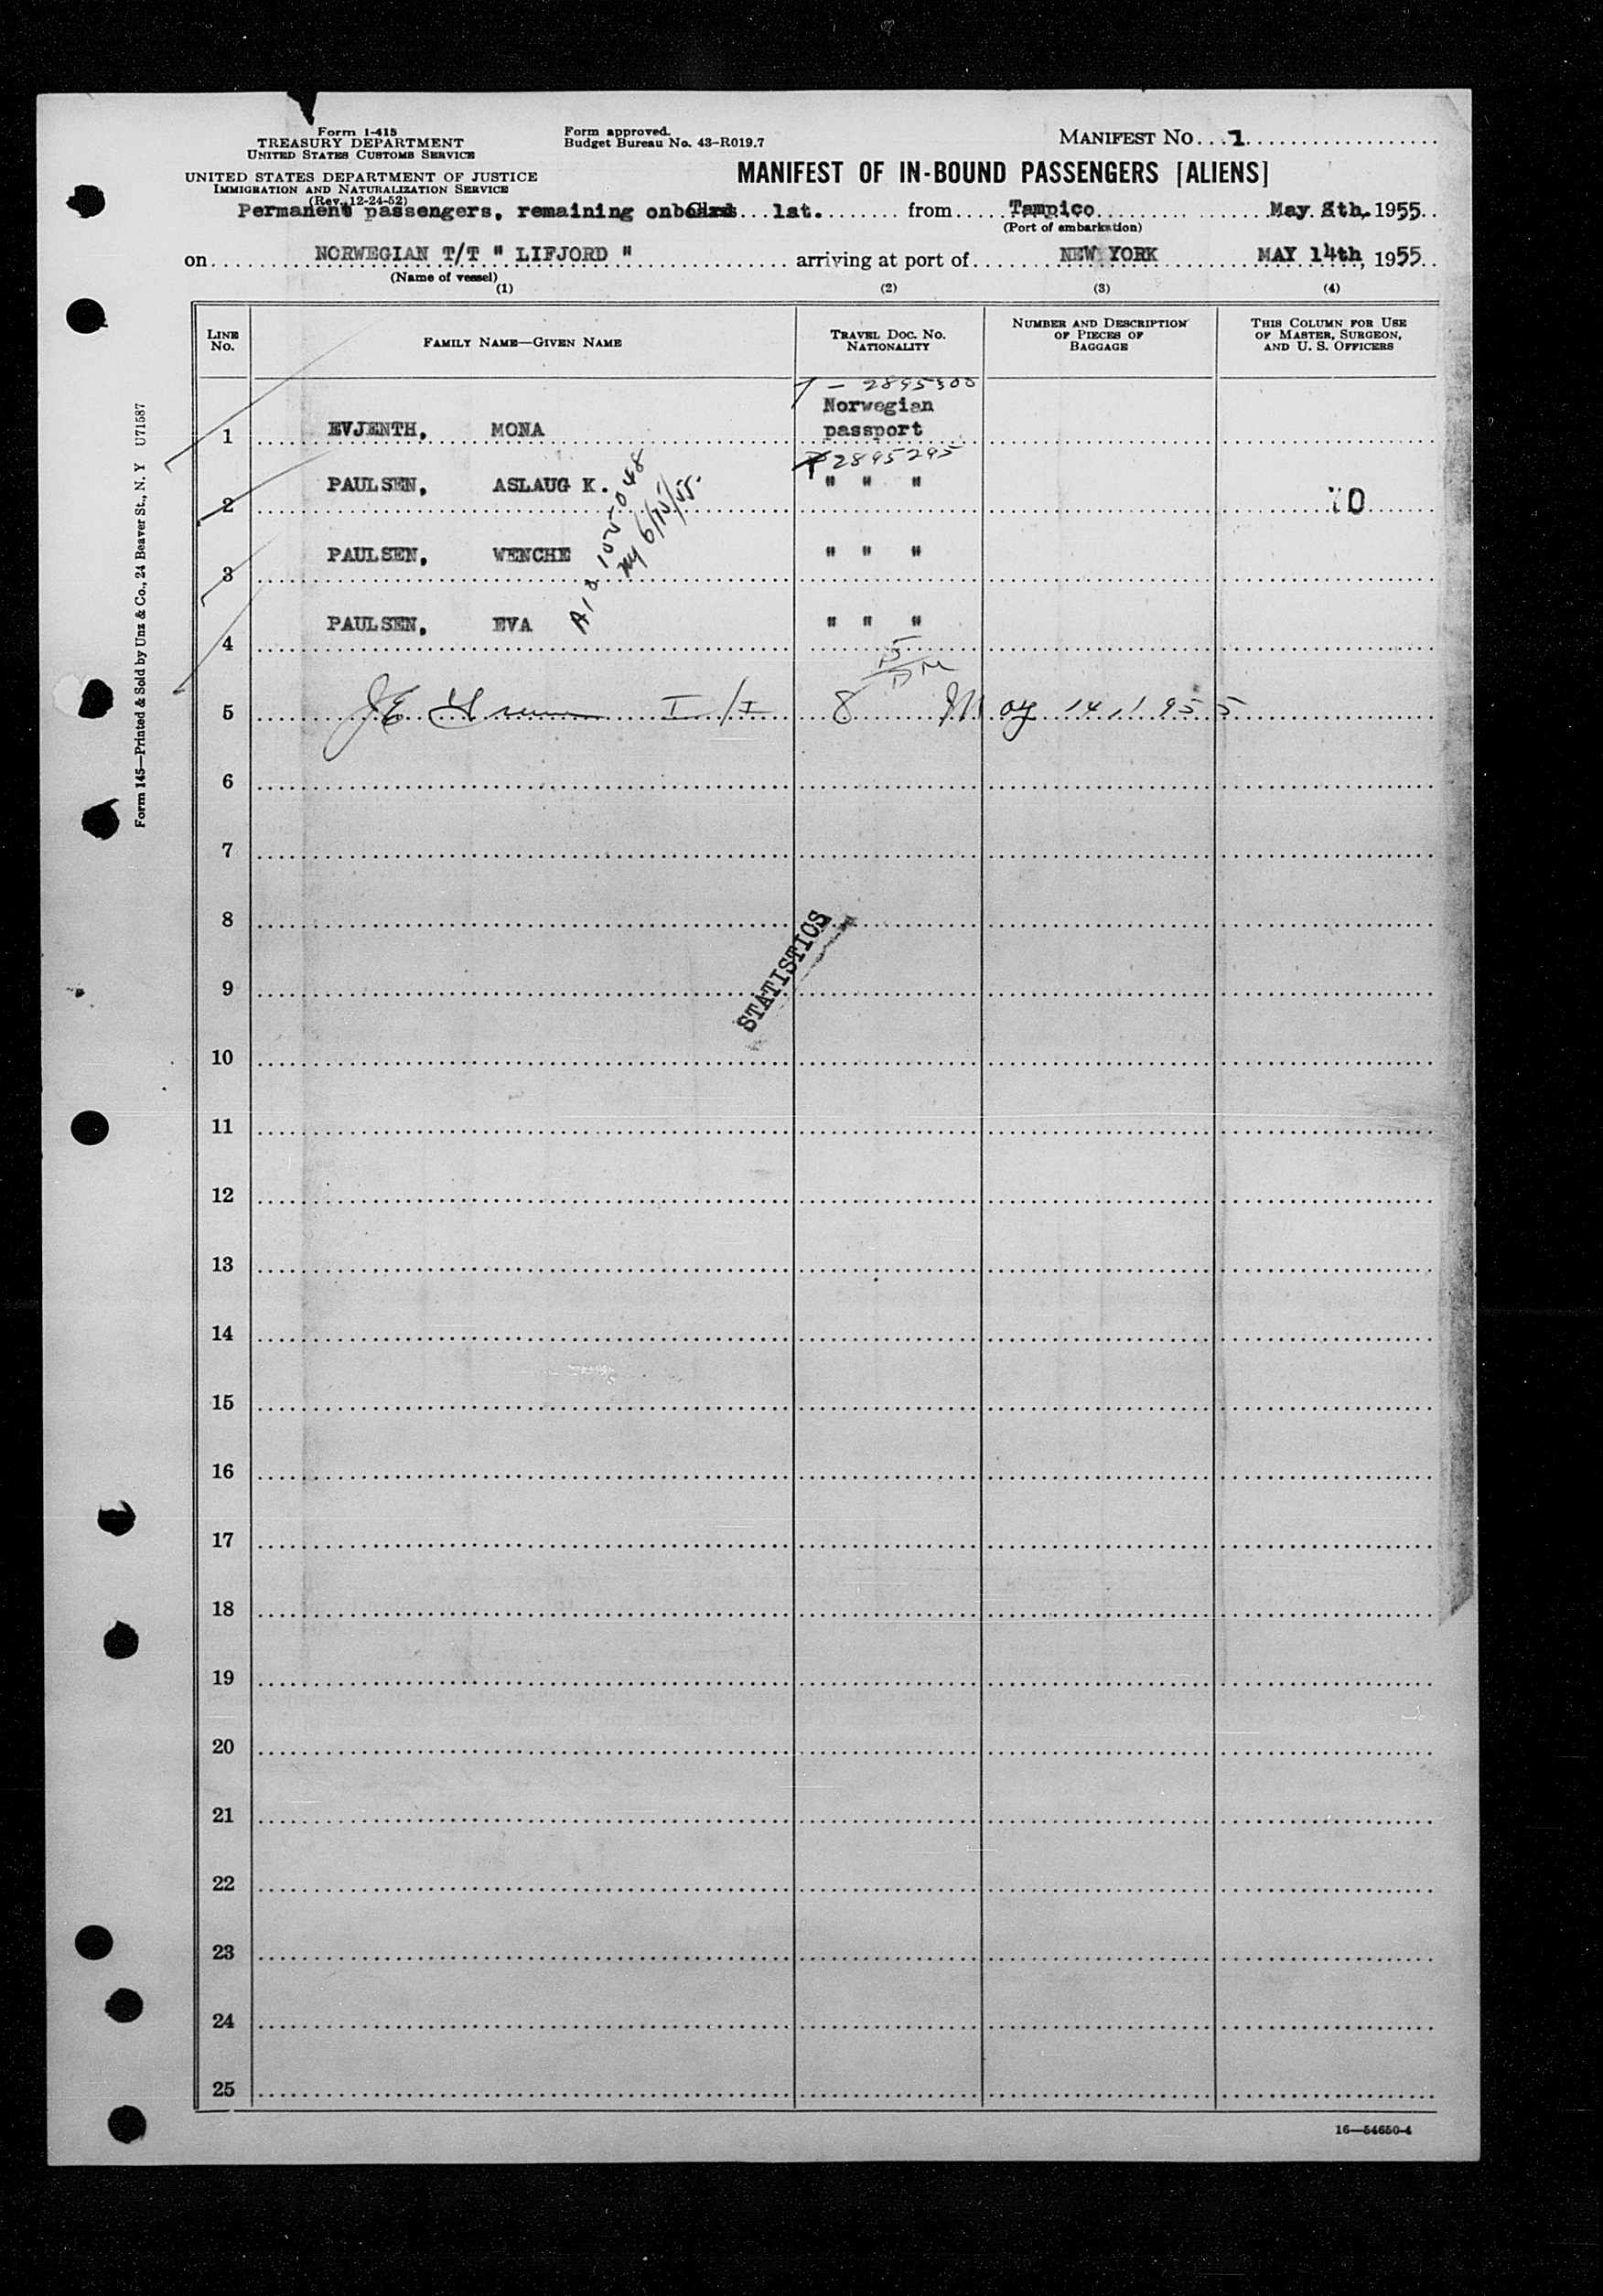 Form I-415
TREASURY DEPARTMENT
UNITED STATES CUSTOMS SERVICE
UNITED STATES DEPARTMENT OF JUSTICE
IMMIGRATION AND NATURALIZATION SERVICE
(Rev. 12-24-52)
Form approved.
Budget Bureau No. 43-R019.7
MANIFEST NO. 1
MANIFEST OF IN-BOUND PASSENGERS [ALIENS]
Permanent passengers, remaining onboard Class 1st. from Tampico May 8th, 1955
(Port of embarkation)
on NORWEGIAN T/T " LIFJORD " arriving at port of NEW YORK MAY 14th, 1955
(Name of vessel)
(1) (2) (3) (4)
LINE NO.
FAMILY NAME—GIVEN NAME
TRAVEL DOC. NO. NATIONALITY
NUMBER AND DESCRIPTION OF PIECES OF BAGGAGE
THIS COLUMN FOR USE OF MASTER, SURGEON, AND U. S. OFFICERS
2895300
1 EVJENTH, MONA Norwegian passport
2895295
2 PAULSEN, ASLAUG K. " " "
3 PAULSEN, WENCHE " " "
4 PAULSEN, EVA " " "
5 May 14, 1955
6
7
8
9
10
11
12
13
14
15
16
17
18
19
20
21
22
23
24
25
STATISTICS
Form 145—Printed & Sold by Unz & Co., 24 Beaver St., N. Y U71587
16—54650-4